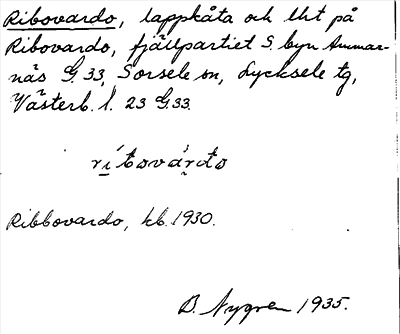 Ribovardo, lappkåta och lht på
Ribovardo, fjällpartiet S. byn Ammar-
näs G.33, Sorsele sn, Lycksele tg,
Västerb. l. 23 G.33.
Ribbovardo, kb. 1930.
B. Nygren 1935.